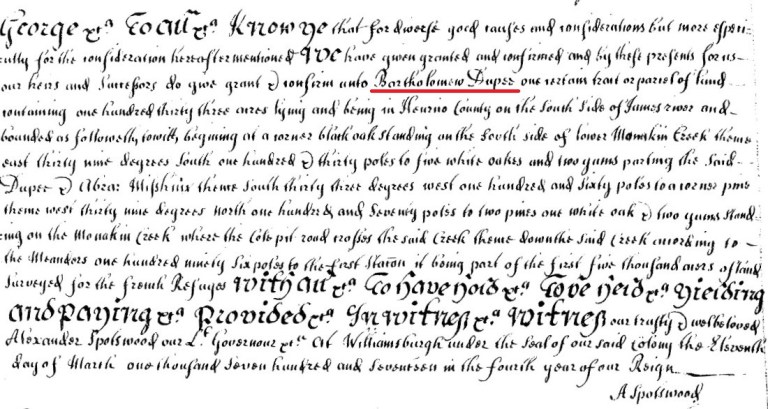 George &ca To all &ca Know ye that for diverse good causes and considerations but more especi-
cially for the consideration hereafter mentioned We have given granted and confirmed and by these presents for us
our heirs and Successors do give grant & confirm unto Bartholomew Dupee one certain tract or parcel of land
containing one hundred thirty three acres lying and being in Henrico County on the South Side of James river and
bounded as followeth, towitt, begining at a corner black oak standing on the South side of lower Monakin Creek thence
east thirty nine degrees South one hundred & thirty poles to five white oakes and two gums parting the said
Dupee & Abra: thence South thirty three degrees west one hundred and sixty poles to a corner pine
thence west thirty nine degrees North one hundred and Seventy poles to two pines one white oak & two gums stand-
ing on the Monakin Creek where the Cole pit road crosses the said Creek thence down the said Creek according to
the Meanders one hundred ninety Six poles to the first Station it being part of the first five thousand acres of land
Surveyed for the French Refuges With all &ca To have hold &ca To be held &ca Yielding
and paying &ca Provided &ca In witness &ca Witness our trusty & welbeloved
Alexander Spotswood our Lt. Governour &ca At Williamsburgh under the Seal of our said Colony the Eleventh
day of March one thousand Seven hundred and Seventeen in the fourth year of our Reign
A Spotswood